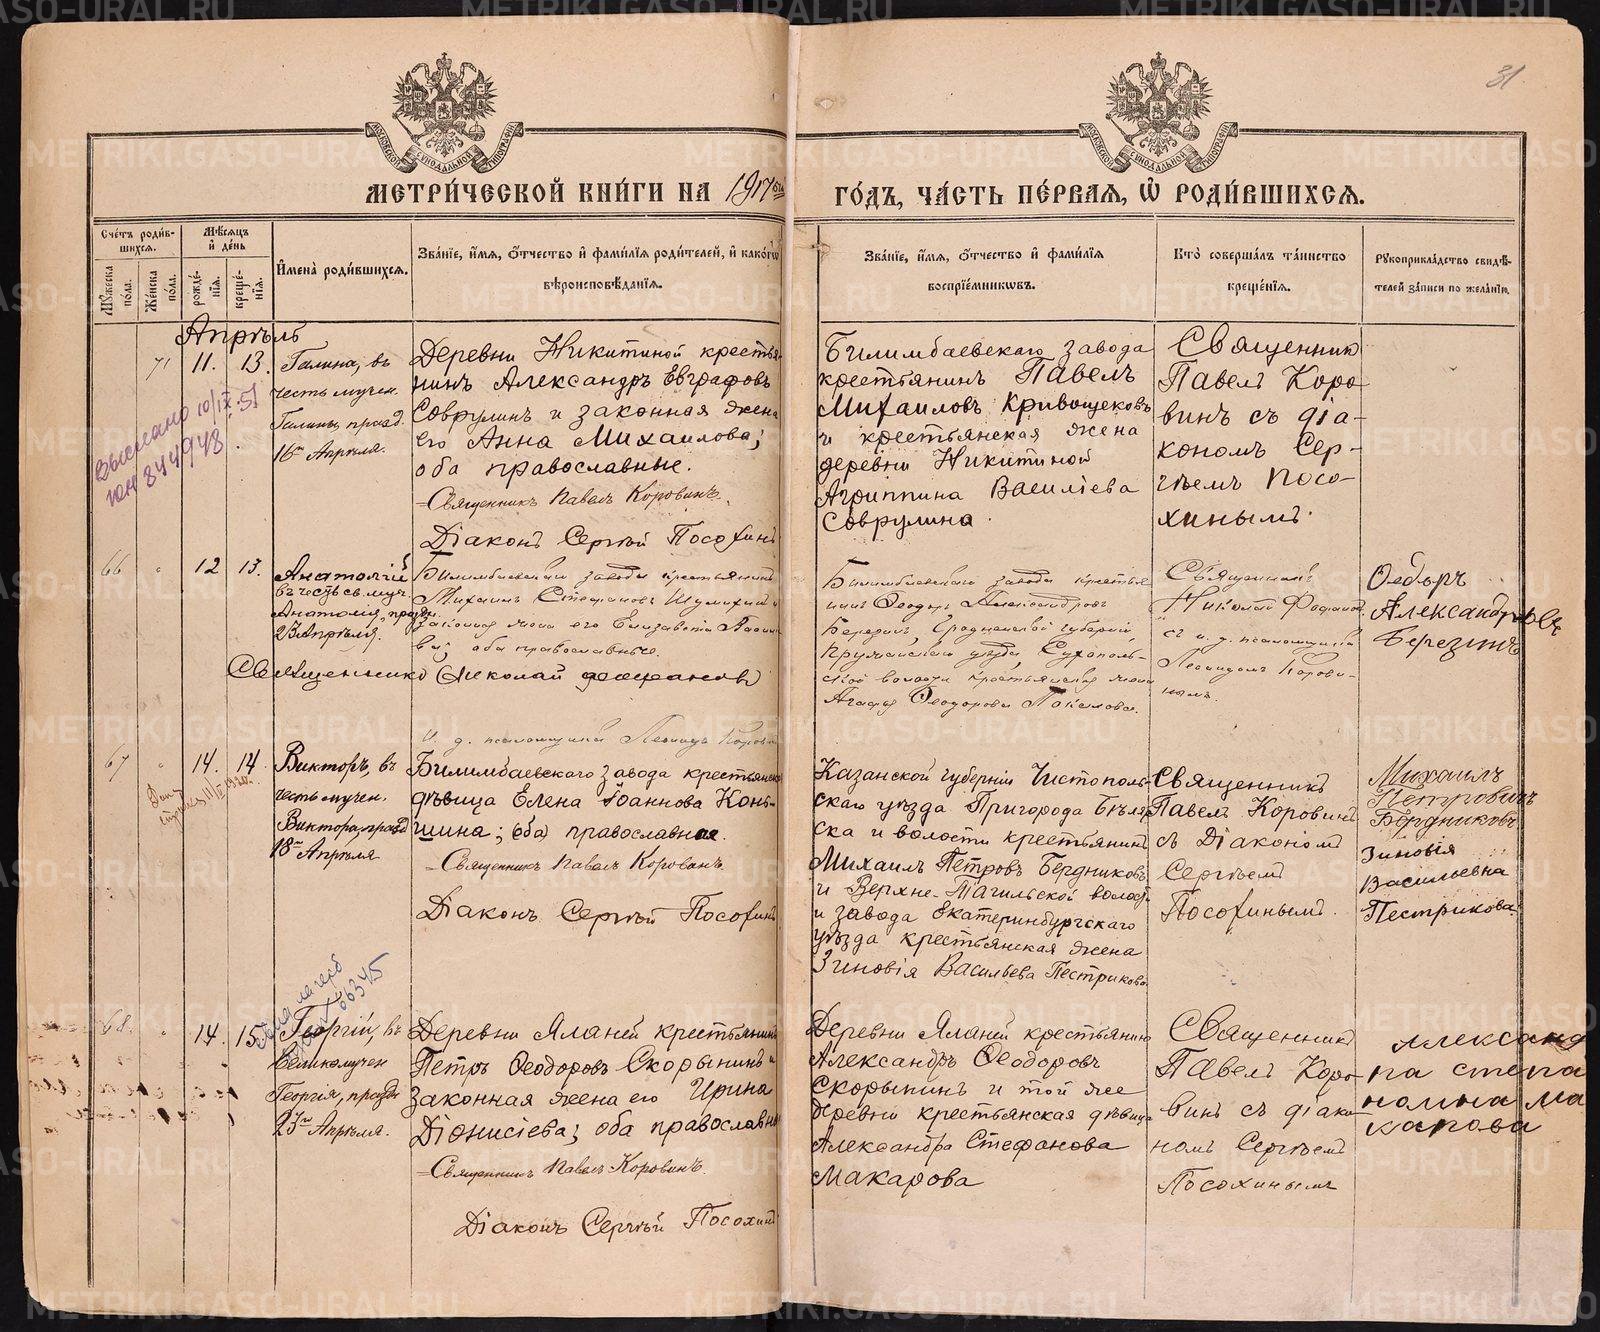 31
МЕТРИ́ЧЕСКОЙ КНИ́ГИ НА 1917ый ГО́ДЪ, ЧА́СТЬ ПЕ́РВАЯ, Ѽ РОДИ́ВШИХСЯ.
Сче́тъ роди́в-
шихся.
Мѣсяцъ
и̂ де́нь
Мꙋ́жеска
по́ла.
Же́нска
по́ла.
рожде́-
нія.
креще́-
нія.
И̂мена̀ роди́вшихся.
Зва́ніе, и̂́мя, о̂́тчество и̂ фами́лія роди́телей, и̂ како́гѡ
вѣроисповѣ́данія.
Зва́ніе, и̂́мя, о̂́тчество и̂ фами́лія
воспріе́мниковъ.
Кто̀ соверша́лъ та́инство
креще́нія.
Рꙋкоприкла́дство свидѣ́-
телей за́писи по жела́нію.
Апрѣль
71 11. 13.
Галина, въ
честь мучен.
Галины, празд.
16го Апрѣля.
Выслано 10/IX-51
844948
Деревни Никитиной крестья-
нинъ Александръ Евграфовъ
Соврулинъ и законная жена
его Анна Михаилова;
оба православные.
Священникъ Павелъ Коровинъ.
Діаконъ Сергѣй Посохинъ
Билимбаевскаго завода
крестьянинъ Павелъ
Михаиловъ Кривощековъ
и крестьянская жена
деревни Никитиной
Агриппина Василіева
Соврулина.
Священникъ
Павелъ Коро-
винъ съ діа-
кономъ Сер-
гѣемъ Посо-
хинымъ.
66 " 12 13.
Анатолій
въ честь св. муч.
Анатолія, празд.
23 Апрѣля.
Билимбаевскаго завода крестьянинъ
Михаилъ Стефановъ Шумихинъ и
законная жена его Елизавета
оба православные.
Священникъ Николай
и. д. псаломщика Леонидъ Коровинъ
Билимбаевскаго завода крестья-
нинъ Ѳеодоръ Александровъ
Березинъ, Гродненской губерніи,
Пружанскаго уѣзда, Сухополь-
ской волости крестьянская жена
Агафья Ѳеодорова
Священникъ
Николай
съ и. д. псаломщика
Леонидомъ Корови-
нымъ.
Ѳедоръ
Александровъ
Березинъ
67 " 14. 14
Викторъ, въ
честь мучен.
Виктора, празд.
18го Апрѣля
Билимбаевскаго завода крестьянская
дѣвица Елена Іоаннова Конь-
шина; оба православные.
Священникъ Павелъ Коровинъ.
Діаконъ Сергѣй Посохинъ
Казанской губерніи Чистополь-
скаго уѣзда Пригорода Биляр-
ска и волости крестьянинъ
Михаилъ Петровъ Бердниковъ
и Верхне-Тагильской волости
и завода Екатеринбургскаго
уѣзда крестьянская жена
Зиновія Васильева Пестрикова
Священникъ
Павелъ Коровинъ
съ Діакономъ
Сергѣемъ
Посохинымъ.
Михаилъ
Петровичъ
Бердниковъ
Зиновія
Васильевна
Пестрикова
68. " 14. 15.
Георгій, въ
великомучен
Георгія, празд.
23го Апрѣля.
Деревни Яланей крестьянинъ
Петръ Ѳеодоровъ Скорынинъ и
законная жена его Ирина
Діонисіева; оба православные
Священникъ Павелъ Коровинъ.
Діаконъ Сергѣй Посохинъ
Деревни Яланей крестьянинъ
Александръ Ѳеодоровъ
Скорынинъ и той же
деревни крестьянская дѣвица
Александра Стефанова
Макарова
Священникъ
Павелъ Коро-
винъ съ діако-
номъ Сергѣемъ
Посохинымъ
Александ
ра степа
новна ма
карова
METRIKI.GASO-URAL.RU